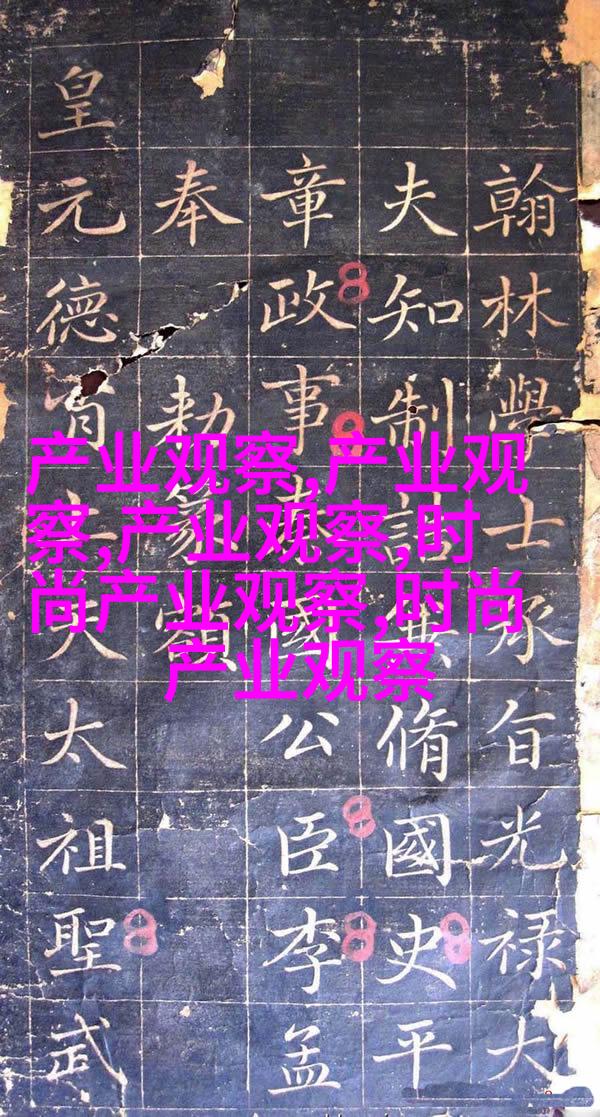 翰林學士承旨光禄大
夫知制誥兼脩國史平
章政事國公臣李孟
奉敕篆額
皇元德夫太祖聖武
产业观察,产业观
察,产业观察,时
尚产业观察,时尚
产业观察